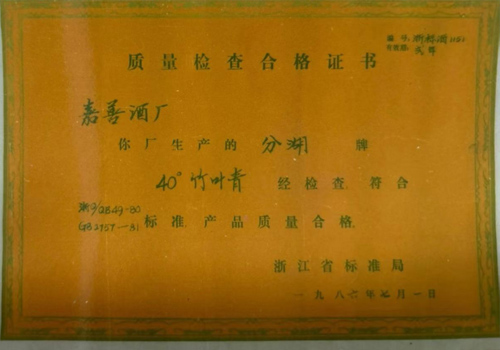 编号:
有效期:
质量检查合格证书
嘉善酒厂
你厂生产的 分湖 牌
40°竹叶青 经检查,符合
浙Q/QB49-80
GB2757-81 标准,产品质量合格。
浙江省标准局
一九八六年七月一日